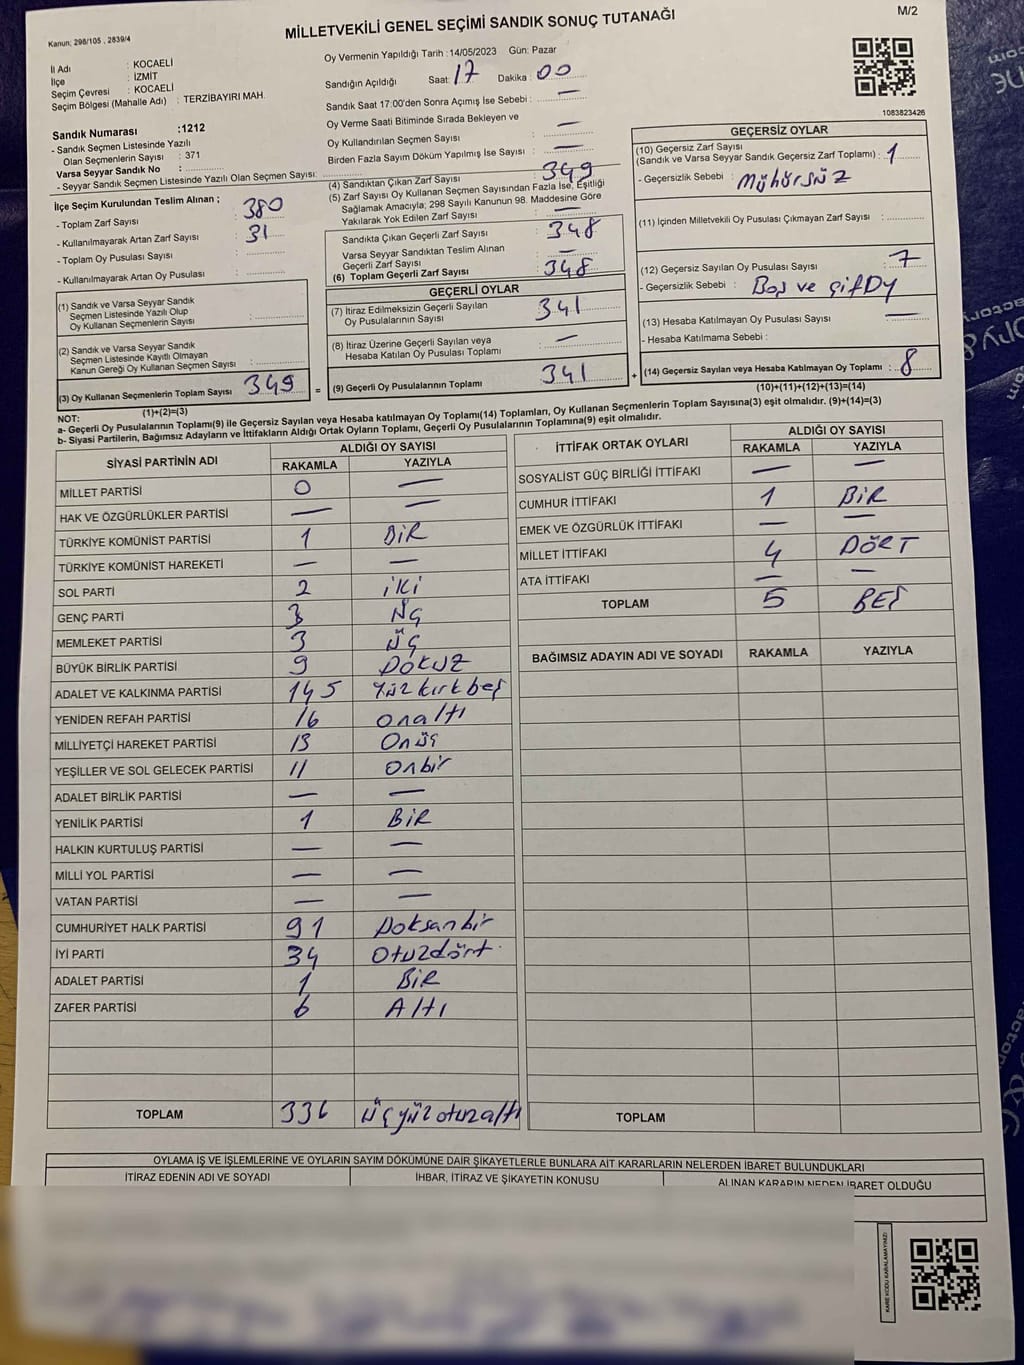 Kanun: 298/105 , 2839/4
MİLLETVEKİLİ GENEL SEÇİMİ SANDIK SONUÇ TUTANAĞI
M/2
İl Adı : KOCAELİ
İlçe : İZMİT
Seçim Çevresi : KOCAELİ
Seçim Bölgesi (Mahalle Adı) : TERZİBAYIRI MAH.
Sandık Numarası :1212
- Sandık Seçmen Listesinde Yazılı
Olan Seçmenlerin Sayısı : 371
Varsa Seyyar Sandık No :
- Seyyar Sandık Seçmen Listesinde Yazılı Olan Seçmen Sayısı:
İlçe Seçim Kurulundan Teslim Alınan ;
- Toplam Zarf Sayısı : 380
- Kullanılmayarak Artan Zarf Sayısı : 31
- Toplam Oy Pusulası Sayısı :
- Kullanılmayarak Artan Oy Pusulası :
(1) Sandık ve Varsa Seyyar Sandık
Seçmen Listesinde Yazılı Olup
Oy Kullanan Seçmenlerin Sayısı :
(2) Sandık ve Varsa Seyyar Sandık
Seçmen Listesinde Kayıtlı Olmayan
Kanun Gereği Oy Kullanan Seçmen Sayısı :
(3) Oy Kullanan Seçmenlerin Toplam Sayısı : 349
(1)+(2)=(3)
Oy Vermenin Yapıldığı Tarih : 14/05/2023 Gün: Pazar
Sandığın Açıldığı Saat: 17 Dakika : 00
Sandık Saat 17:00'den Sonra Açımış İse Sebebi : —
Oy Verme Saati Bitiminde Sırada Bekleyen ve
Oy Kullandırılan Seçmen Sayısı : —
Birden Fazla Sayım Döküm Yapılmış İse Sayısı : —
(4) Sandıktan Çıkan Zarf Sayısı : 349
(5) Zarf Sayısı Oy Kullanan Seçmen Sayısından Fazla İse, Eşitliği
Sağlamak Amacıyla; 298 Sayılı Kanunun 98. Maddesine Göre
Yakılarak Yok Edilen Zarf Sayısı : —
Sandıkta Çıkan Geçerli Zarf Sayısı : 348
Varsa Seyyar Sandıktan Teslim Alınan
Geçerli Zarf Sayısı : —
(6) Toplam Geçerli Zarf Sayısı : 348
GEÇERLİ OYLAR
(7) İtiraz Edilmeksizin Geçerli Sayılan
Oy Pusulalarının Sayısı : 341
(8) İtiraz Üzerine Geçerli Sayılan veya
Hesaba Katılan Oy Pusulası Toplamı : —
= (9) Geçerli Oy Pusulalarının Toplamı : 341 +
1083823426
GEÇERSİZ OYLAR
(10) Geçersiz Zarf Sayısı
(Sandık ve Varsa Seyyar Sandık Geçersiz Zarf Toplamı) : 1
- Geçersizlik Sebebi : Mühürsüz
(11) İçinden Milletvekili Oy Pusulası Çıkmayan Zarf Sayısı :
(12) Geçersiz Sayılan Oy Pusulası Sayısı : 7
- Geçersizlik Sebebi : Boş ve çift oy
(13) Hesaba Katılmayan Oy Pusulası Sayısı : —
- Hesaba Katılmama Sebebi :
(14) Geçersiz Sayılan veya Hesaba Katılmayan Oy Toplamı : 8
(10)+(11)+(12)+(13)=(14)
NOT:
a- Geçerli Oy Pusulalarının Toplamı(9) ile Geçersiz Sayılan veya Hesaba katılmayan Oy Toplamı(14) Toplamları, Oy Kullanan Seçmenlerin Toplam Sayısına(3) eşit olmalıdır. (9)+(14)=(3)
b- Siyasi Partilerin, Bağımsız Adayların ve İttifakların Aldığı Ortak Oyların Toplamı, Geçerli Oy Pusulalarının Toplamına(9) eşit olmalıdır.
SİYASİ PARTİNİN ADI ALDIĞI OY SAYISI
RAKAMLA YAZIYLA
MİLLET PARTİSİ 0 —
HAK VE ÖZGÜRLÜKLER PARTİSİ — —
TÜRKİYE KOMÜNİST PARTİSİ 1 BİR
TÜRKİYE KOMÜNİST HAREKETİ — —
SOL PARTİ 2 İKİ
GENÇ PARTİ 3 ÜÇ
MEMLEKET PARTİSİ 3 ÜÇ
BÜYÜK BİRLİK PARTİSİ 9 DOKUZ
ADALET VE KALKINMA PARTİSİ 145 Yüzkırkbeş
YENİDEN REFAH PARTİSİ 16 onaltı
MİLLİYETÇİ HAREKET PARTİSİ 13 Onüç
YEŞİLLER VE SOL GELECEK PARTİSİ 11 Onbir
ADALET BİRLİK PARTİSİ — —
YENİLİK PARTİSİ 1 BİR
HALKIN KURTULUŞ PARTİSİ — —
MİLLİ YOL PARTİSİ — —
VATAN PARTİSİ — —
CUMHURİYET HALK PARTİSİ 91 Doksanbir
İYİ PARTİ 34 Otuzdört
ADALET PARTİSİ 1 BİR
ZAFER PARTİSİ 6 Altı
TOPLAM 336 üçyüzotuzaltı
İTTİFAK ORTAK OYLARI ALDIĞI OY SAYISI
RAKAMLA YAZIYLA
SOSYALİST GÜÇ BİRLİĞİ İTTİFAKI — —
CUMHUR İTTİFAKI 1 BİR
EMEK VE ÖZGÜRLÜK İTTİFAKI — —
MİLLET İTTİFAKI 4 DÖRT
ATA İTTİFAKI — —
TOPLAM 5 BEŞ
BAĞIMSIZ ADAYIN ADI VE SOYADI RAKAMLA YAZIYLA
TOPLAM
OYLAMA İŞ VE İŞLEMLERİNE VE OYLARIN SAYIM DÖKÜMÜNE DAİR ŞİKAYETLERLE BUNLARA AİT KARARLARIN NELERDEN İBARET BULUNDUKLARI
İTİRAZ EDENİN ADI VE SOYADI İHBAR, İTİRAZ VE ŞİKAYETİN KONUSU ALINAN KARARIN NEDEN İBARET OLDUĞU
KARE KODU KARALAMAYINIZ!